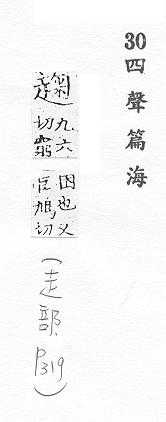 30四聲篇海
趜
九六
切窮
困也又
巨鳩切
(走部 P319)